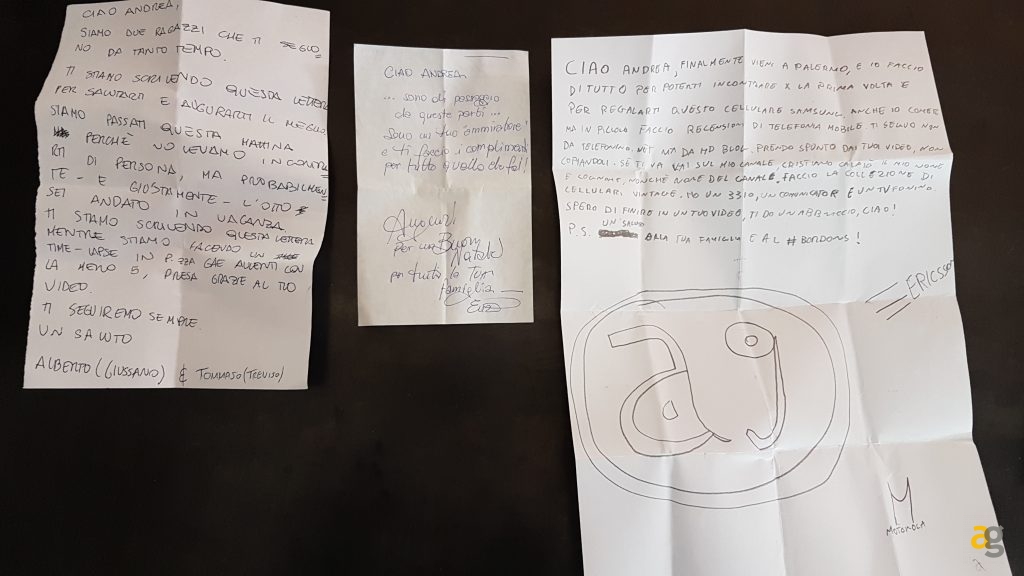 CIAO ANDREA,
SIAMO DUE RAGAZZI CHE TI SEGUO
NO DA TANTO TEMPO.
TI STIAMO SCRIVENDO QUESTA LETTERA
PER SALUTARTI E AUGURARTI IL MEGLIO.
SIAMO PASSATI QUESTA MATTINA
PERCHÈ VOLEVAMO INCONTRA
RTI DI PERSONA, MA PROBABILMEN
TE - E GIUSTAMENTE - L'8
SEI ANDATO IN VACANZA.
TI STIAMO SCRIVENDO QUESTA LETTERA
MENTRE STIAMO FACENDO UN
TIME-LAPSE IN P.ZZA GAE AULENTI CON
LA HERO 5, PRESA GRAZIE AL TUO
VIDEO.
TI SEGUIREMO SEMPRE.
UN SALUTO
ALBERTO (GIUSSANO) & TOMMASO (TREVISO)
CIAO ANDREA,
... sono di passaggio
da queste parti ...
Sono un tuo ammiratore!
e ti faccio i complimenti
per tutto quello che fai!
Auguri
per un Buon
Natale
per tutta la Tua
famiglia
CIAO ANDREA, FINALMENTE VIENI A PALERMO, E IO FACCIO
DI TUTTO PER POTERTI INCONTRARE X LA PRIMA VOLTA E
PER REGALARTI QUESTO CELLULARE SAMSUNG. ANCHE IO COME TE
MA IN PICCOLO FACCIO RECENSIONI DI TELEFONIA MOBILE. TI SEGUO NON
DA TELEFONINO.NET MA DA HD BLOG. PRENDO SPUNTO DAI TUOI VIDEO, NON
COPIANDOLI. SE TI VA VAI SUL MIO CANALE, CRISTIANO IL MIO NOME
E COGNOME, NONCHÈ NOME DEL CANALE. FACCIO LA COLLEZIONE DI
CELLULARI VINTAGE. HO UN 3310, UN COMUNICATOR E UN TVFONINO.
SPERO DI FINIRE IN UN TUO VIDEO, TI DO UN ABBRACCIO, CIAO!
P.S. UN SALUTO ALLA TUA FAMIGLIA E AL #BORDONS!
ERICSSON
a
MOTOROLA
ag